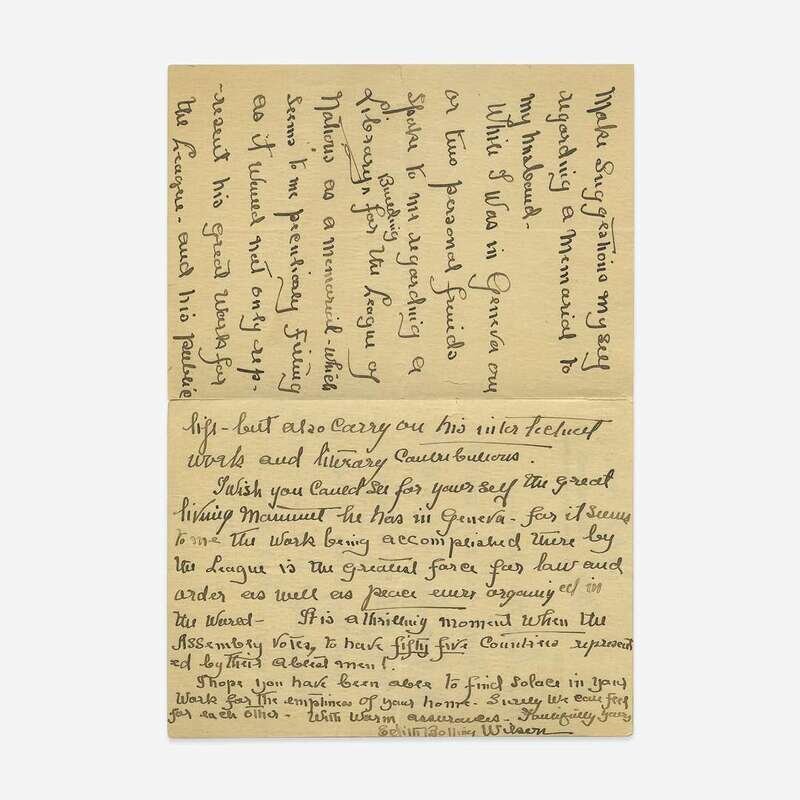 Make Suggestions myself
regarding a Memorial to
my husband-
While I was in Geneva one
or two personal friends
spoke to me regarding a
Library Building for the League of
Nations as a memorial-which
seems to me peculiarly fitting
as it would not only rep-
-resent his great work for
the League- and his public
life-but also carry on his intellectual
work and literary contributions.
I wish you could see for yourself the great
living monument he has in Geneva- for it seems
to me the work being accomplished there by
the League is the greatest force for law and
order as well as peace ever organized in
the World- It is a thrilling moment when the
Assembly votes, to have fifty five countries represent
ed by their ablest men!
I hope you have been able to find solace in your
work for the emptiness of your home- Surely we can feel
for each other- With warm assurances- Faithfully yours
Edith Bolling Wilson